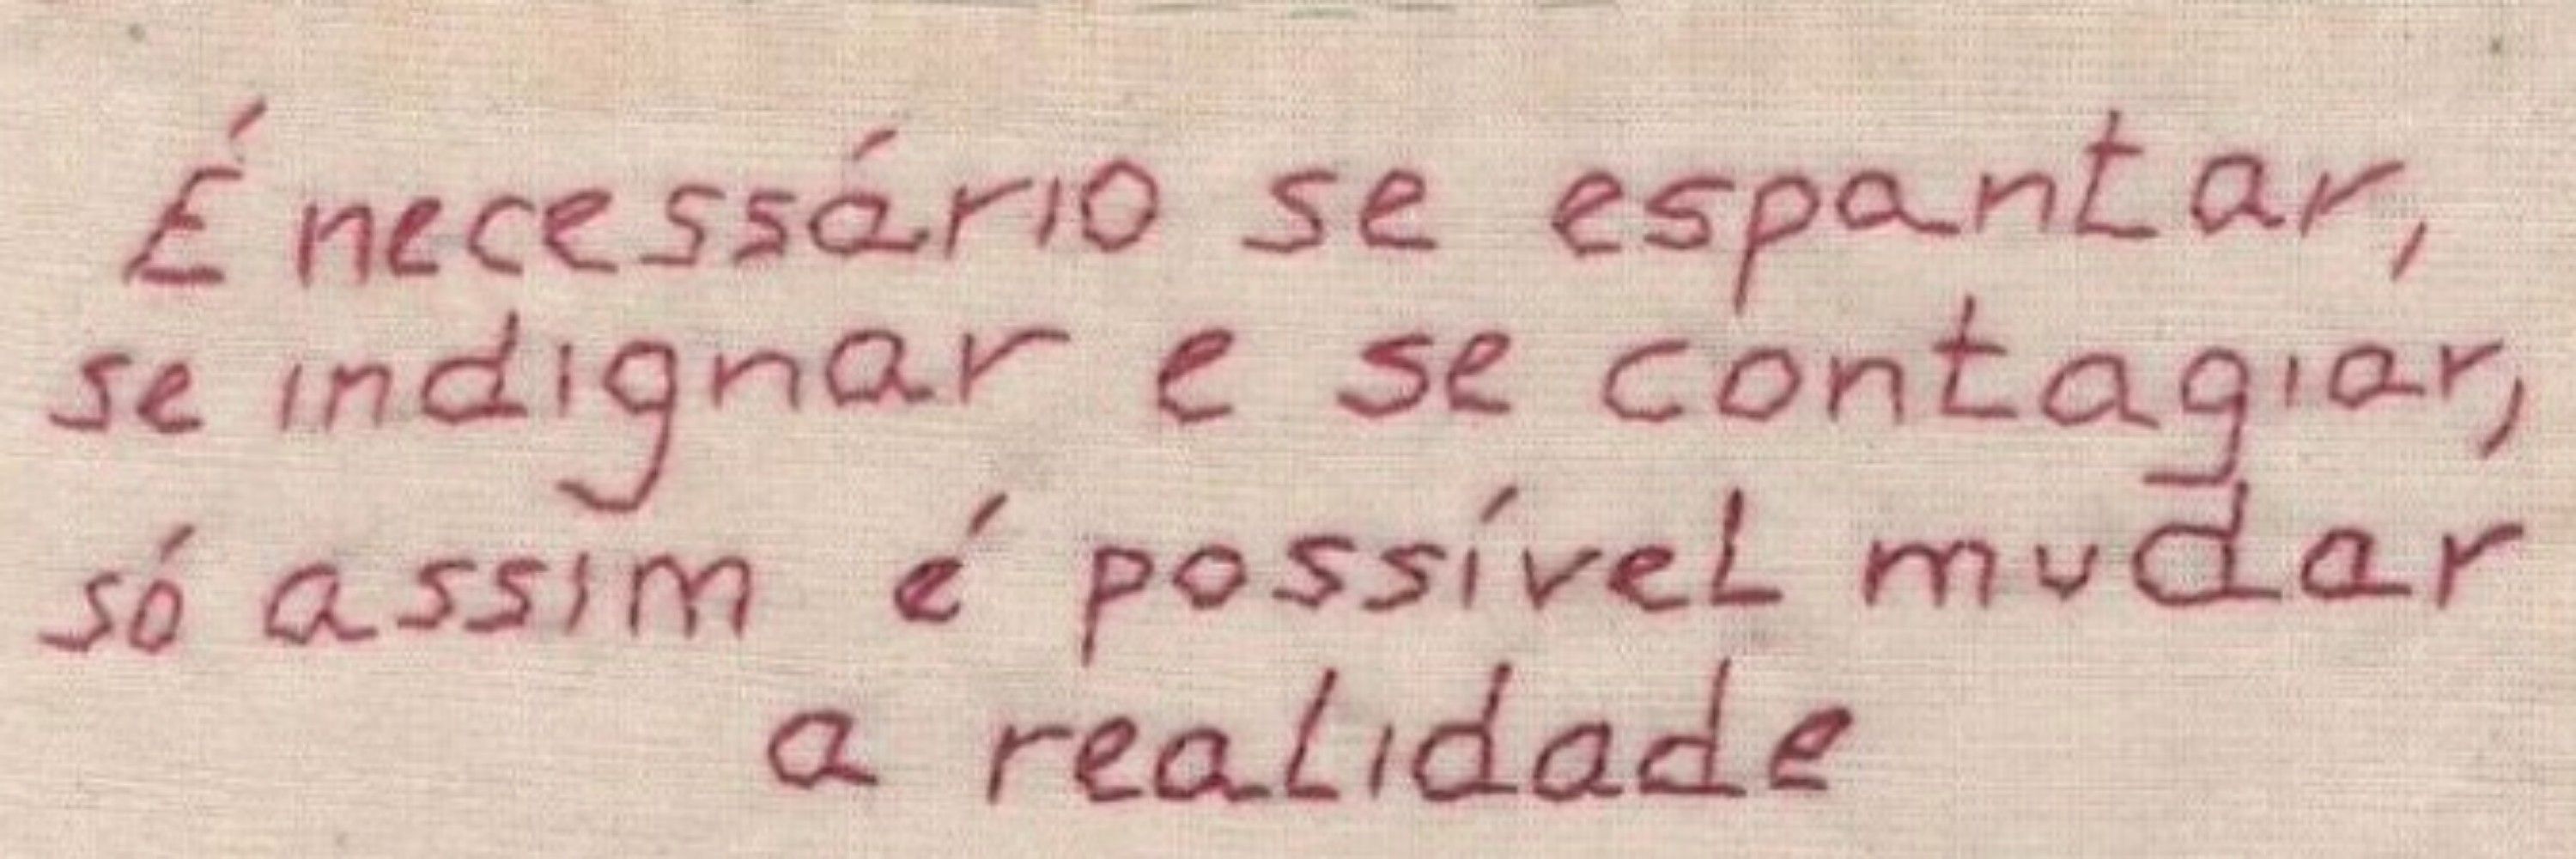 É necessário se espantar,
se indignar e se contagiar,
só assim é possível mudar
a realidade